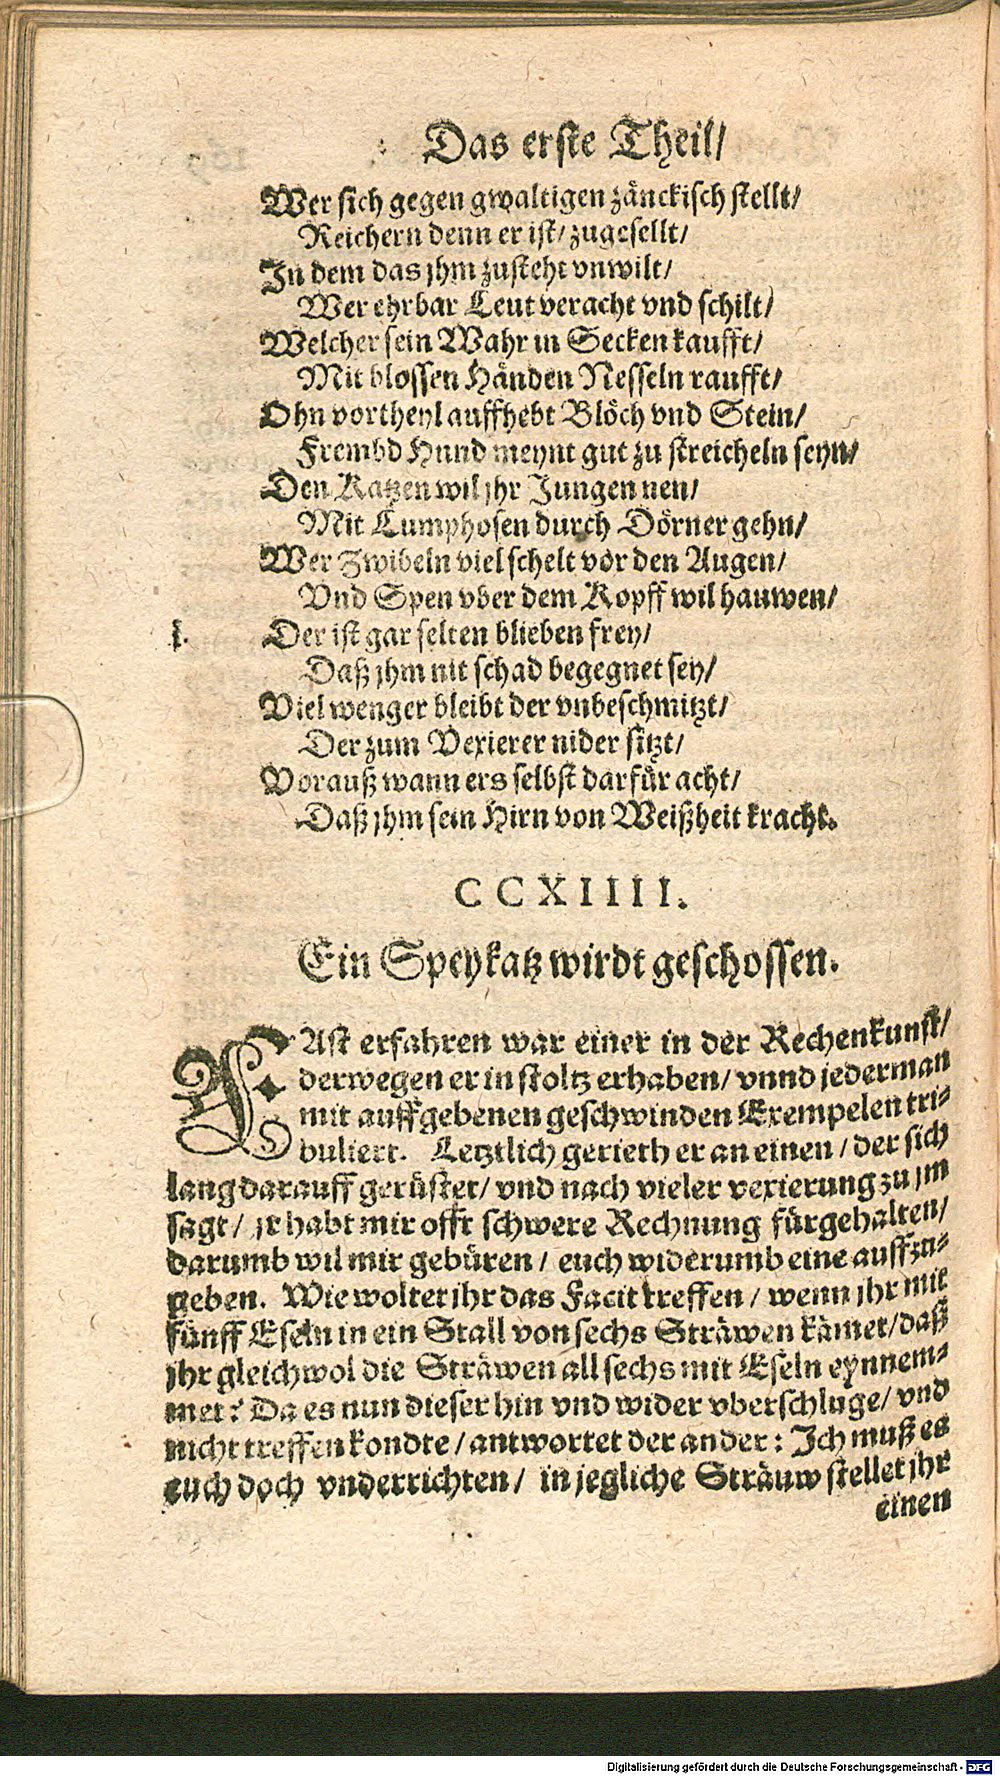 Das erste Theil/
Wer sich gegen gwaltigen zänckisch stellt/
Reichern denn er ist/ zugesellt/
In dem das jhm zusteht vnwilt/
Wer ehrbar Leut veracht vnd schilt/
Welcher sein Wahr in Secken kaufft/
Mit blossen Händen Nesseln raufft/
Ohn vortheyl auffhebt Blöch vnd Stein/
Frembd Hund meynt gut zu streicheln seyn/
Den Katzen wil jhr Jungen nen/
Mit Lumphosen durch Dörner gehn/
Wer Zwibeln viel schelt vor den Augen/
Vnd Spen vber dem Kopff wil hauwen/
Der ist gar selten blieben frey/
Daß jhm nit schad begegnet sey/
Viel wenger bleibt der vnbeschmitzt/
Der zum Vexierer nider sitzt/
Vorauß wann ers selbst darfür acht/
Daß jhm sein Hirn von Weißheit kracht.
CCXIIII.
Ein Speykatz wirdt geschossen.
FAst erfahren war einer in der Rechenkunst/
derwegen er in stoltz erhaben/ vnnd jederman
mit auffgebenen geschwinden Exempelen tri-
buliert. Letztlich gerieth er an einen/ der sich
lang darauff gerüstet/ vnd nach vieler vexierung zu jm
sagt/ jr habt mir offt schwere Rechnung fürgehalten/
darumb wil mir gebüren/ euch widerumb eine auffzu-
geben. Wie woltet jhr das Facit treffen/ wenn jhr mit
fünff Eseln in ein Stall von sechs Sträwen kämet/ daß
jhr gleichwol die Sträwen all sechs mit Eseln eynnem-
met? Da es nun dieser hin vnd wider vberschluge/ vnd
nicht treffen kondte/ antwortet der ander: Ich muß es
euch doch vnderrichten/ in jegliche Sträuw stellet jhr
einen
Digitalisierung gefördert durch die Deutsche Forschungsgemeinschaft - DFG